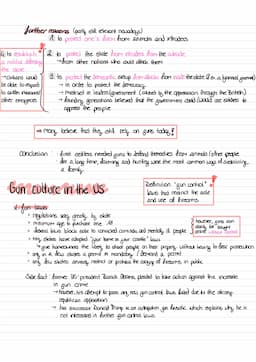 further reasons (partly still relevant nowadays)
1) to protect one's farm from animals and intruders
2) to protect the state from attacks from the outside
→ from other nations who could attack them
3) to protect the democratic setup from attacks from inside the state (f.e. a tyrannical government)
→ in order to protect the democracy
→ mistrust in leaders/government (caused by the oppression through the British)
→ founding generations believed that the government could use soldiers to oppress the people
4) to establish a militia defending the state
→ citizens would be able to respond to
other emergencies
→ Many believe that they still rely on guns today!
Conclusion: first settlers needed guns to defend themselves from animals/other people
for a long time, farming and hunting were the most common ways of sustaining
a family
Gun culture in the US
Definition "gun control"
laws that restrict the sale
and use of firearms
• regulations vary greatly by state
• minimum age to purchase:
• federal laws: block sale to convicted criminals and mentally ill people
however, guns can
easily be bought
• many states have adopted "your home is your castle" laws
→ give homeowners the liberty to shoot people on their property without having to fear prosecution
• only in a few states a permit is mandatory
• only few states
restrict or prohibit the carrying of firearms in public
Side fact: former US-president Barack Obama pleaded to take action against the increase
in gun crime
• however, his attempt to pass any new gun control laws failed due to the strong
republican opposition
• his successor Donald Trump is an outspoken gun fanatic which explains why he is
not interested in further gun control laws